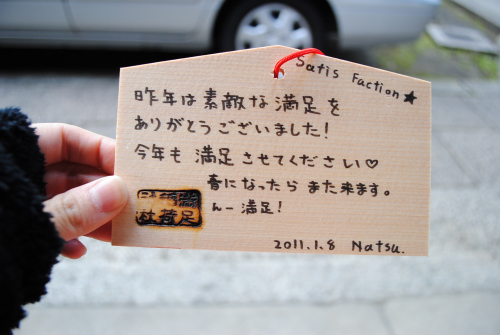 Satis Faction★
昨年は素敵な満足を
ありがとうございました!
今年も満足させてください♡
春になったらまた来ます。
んー満足!
2011.1.8 Natsu.